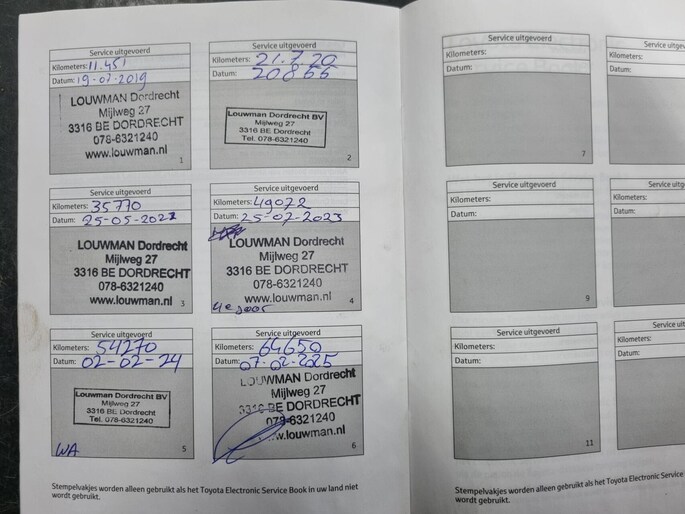 Service uitgevoerd
Kilometers: 11.451
Datum: 19-07-2019
LOUWMAN Dordrecht
Mijlweg 27
3316 BE DORDRECHT
078-6321240
www.louwman.nl
1
Service uitgevoerd
Kilometers: 21.7.20
Datum: 20866
Louwman Dordrecht BV
Mijlweg 27
3316 BE Dordrecht
Tel. 078-6321240
2
Service uitgevoerd
Kilometers: 35770
Datum: 25-05-2022
LOUWMAN Dordrecht
Mijlweg 27
3316 BE DORDRECHT
078-6321240
www.louwman.nl
3
Service uitgevoerd
Kilometers: 49072
Datum: 25-07-2023
LOUWMAN Dordrecht
Mijlweg 27
3316 BE DORDRECHT
078-6321240
www.louwman.nl
4
Service uitgevoerd
Kilometers: 54270
Datum: 02-02-24
Louwman Dordrecht BV
Mijlweg 27
3316 BE Dordrecht
Tel. 078-6321240
WA
5
Service uitgevoerd
Kilometers: 64650
Datum: 07-02-2025
LOUWMAN Dordrecht
Mijlweg 27
3316 BE DORDRECHT
078-6321240
www.louwman.nl
6
Stempelvakjes worden alleen gebruikt als het Toyota Electronic Service Book in uw land niet
wordt gebruikt.
Service uitgevoerd
Kilometers:
Datum:
7
Service
Kilometers:
Datum:
Service uitgevoerd
Kilometers:
Datum:
9
Service
Kilometers:
Datum:
Service uitgevoerd
Kilometers:
Datum:
11
Service
Kilometers:
Datum:
Stempelvakjes worden alleen gebruikt als het Toyota Electronic Service
wordt gebruikt.